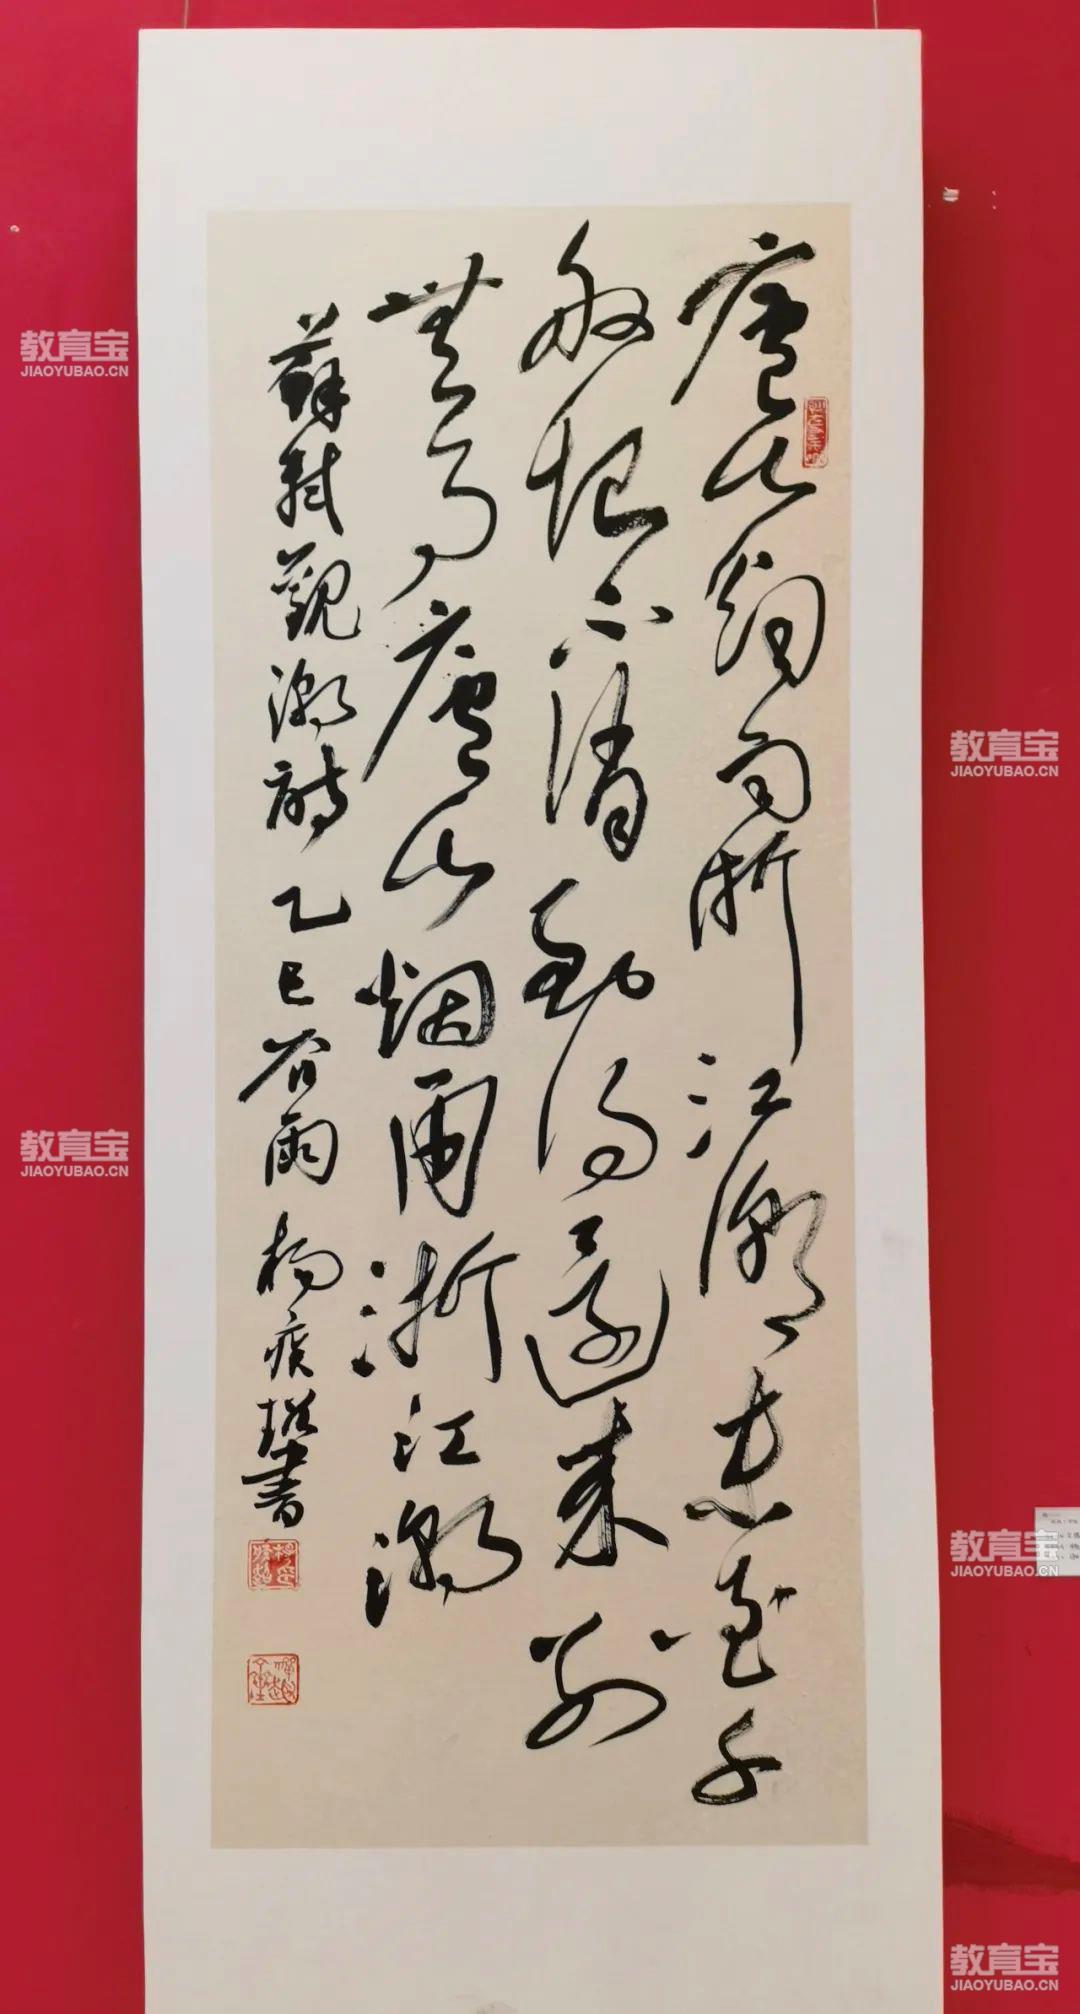 廬山烟雨浙江潮未至千
般恨不消到得還來別
無事廬山烟雨浙江潮
蘇軾觀潮詩乙巳谷雨楊書
教育宝
JIAOYUBAO.CN
教育宝
JIAOYUBAO.CN
教育宝
JIAOYUBAO.CN
教育宝
JIAOYUBAO.CN
教育宝
JIAOYUBAO.CN